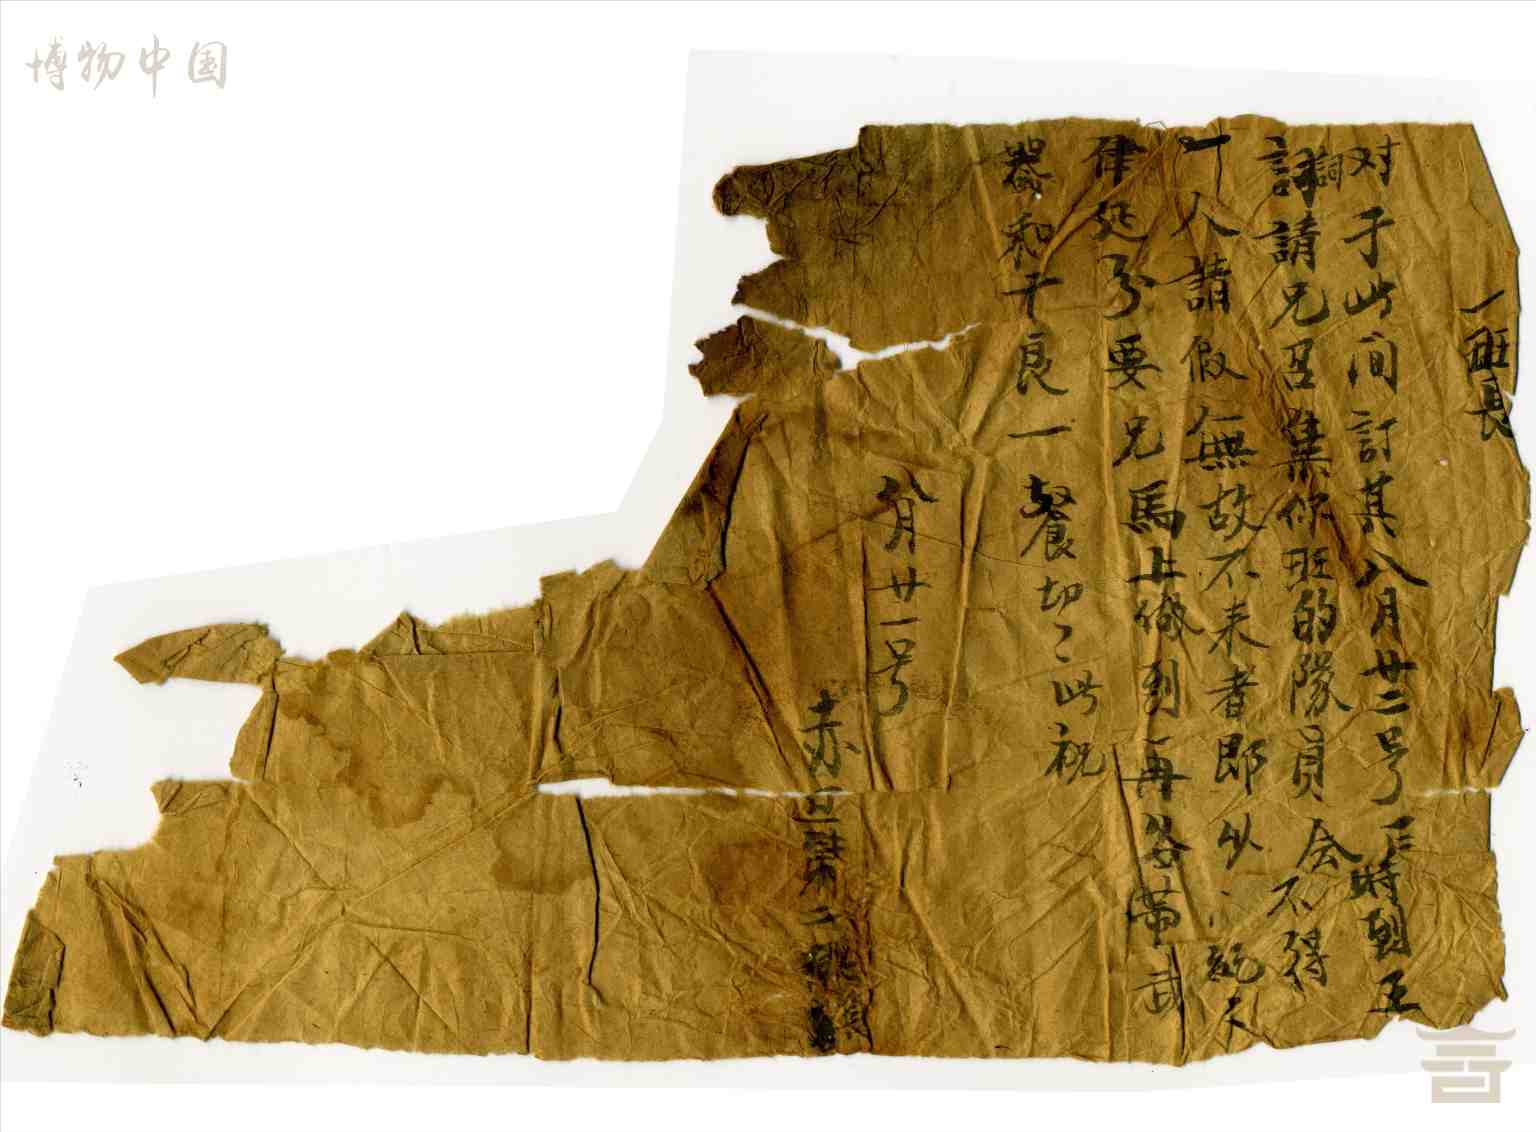 博物中国
一班長
对于此间訂其八月廿二号下時到正
詞訓請兄召集你班的隊員会不得
丁人請假無故不来者即以
律処分要兄馬上做到再各带武
器和干良一餐切〻此祝
八月廿一号
赤卫隊二排長